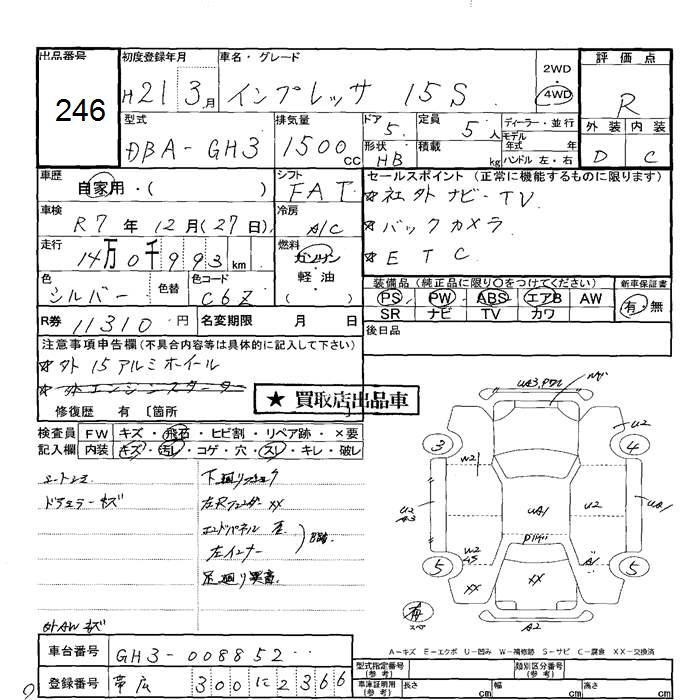 出品番号
246
初度登録年月
H21 3月
車名・グレード
インプレッサ 15S
2WD
4WD
評価点
R
外装 内装
D C
型式
DBA-GH3
排気量
1500cc
ドア
5
形状
HB
定員
5人
積載
kg
ディーラー・並行
モデル年式 年式
ハンドル 左・右
車歴
自家用・( )
シフト
FAT
セールスポイント (正常に機能するものに限ります)
☆社外ナビ-TV
☆バックカメラ
☆ETC
車検
R7年12月(27日)
冷房
A/C
走行
14万0千993km
燃料
ガソリン
軽油
( )
色
シルバー
色替
色コード
C6Z
装備品 (純正品に限り○をつけてください)
PS PW ABS エアB AW
SR ナビ TV カワ
新車保証書
有・無
R券 11310円
名変期限 月 日
後日品
注意事項申告欄(不具合内容等は具体的に記入して下さい)
☆外15アルミホイール
☆外エンジンスターター
修復歴 有 〔箇所
★ 買取店出品車
検査員記入欄
FW キズ・飛石・ヒビ割・リペア跡・×要
内装 キズ・汚レ・コゲ・穴・スレ・キレ・破レ
ドアミラーキズ
左Rフェンダー XX
エンドパネル
左インナー
外AWキズ
UA3,P2U
3
4
U2
W2
U2
A3
UA1
U2
UA1
W2
45
A1
5
5
XX
XX
有
スペア
A2
A-キズ E-エクボ U-凹み W-補修跡 S-サビ C-腐食 XX-交換済
車台番号
GH3-008852
登録番号
帯広 300 に 2366
型式指定番号
(参考)
類別区分番号
(参考)
車庫証明用
(参考)
長さ cm
幅 cm
高さ cm